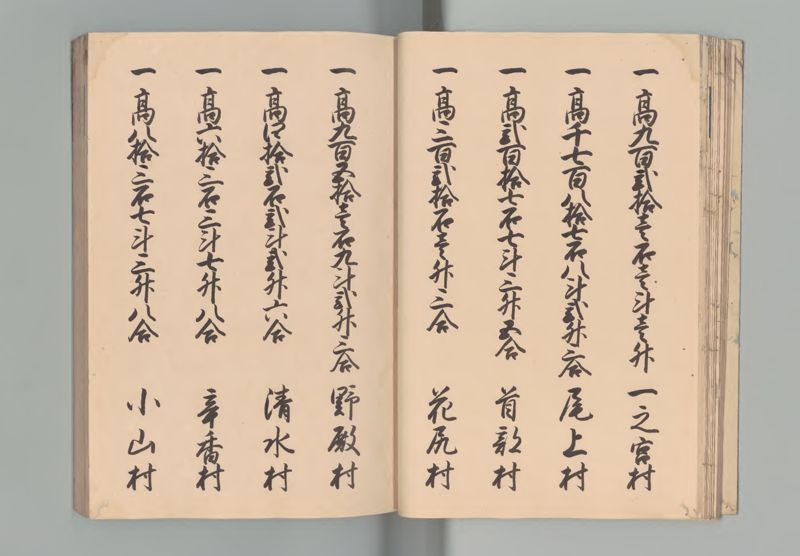 一 高九百弐拾壱石壱斗壱升 一之宮村
一 高千七百八拾七石八斗弐升二合 尾上村
一 高弐百拾七石七斗三升五合 首部村
一 高三百弐拾石壱升三合 花尻村
一 高九百五拾壱石九斗弐升二合 野殿村
一 高四拾弐石弐斗弐升六合 清水村
一 高六拾三石三斗七升八合 辛香村
一 高八拾三石七斗三升八合 小山村